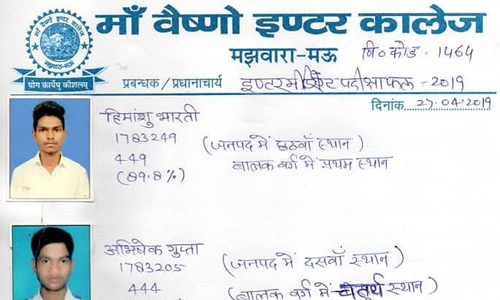 माँ वैष्णो इण्टर कालेज
माँ वैष्णो इण्टर कालेज
मझवारा-मऊ
योग कर्मसु कौशलम्
मझवारा-मऊ वि० कोड - 1464
प्रबन्धक / प्रधानाचार्य इण्टरमीडिएट परीक्षाफल - 2019
दिनांक 27.04.2019
हिमांशु भारती
1783249 (जनपद में छठवाँ स्थान)
449 बालक वर्ग में प्रथम स्थान
(89.8%)
अभिषेक गुप्ता
1783205 (जनपद में दसवाँ स्थान)
444 (बालक वर्ग में चतुर्थ स्थान)